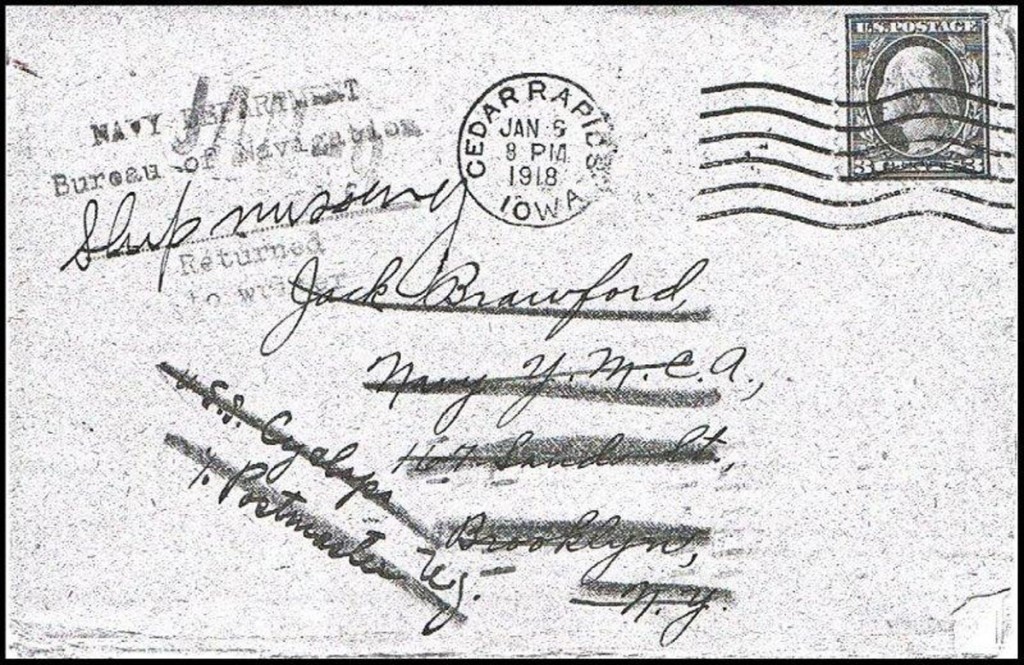 U.S. POSTAGE
3 CENTS 3
CEDAR RAPIDS
JAN 5
8 PM
1918
IOWA
NAVY DEPARTMENT
Bureau of Navigation
Ship missing
Returned
to writer
Jack Brawford,
Navy Y.M.C.A.,
167 Sands St,
Brooklyn,
N.Y.
U.S.S. Cyclops
Postmaster N.Y.